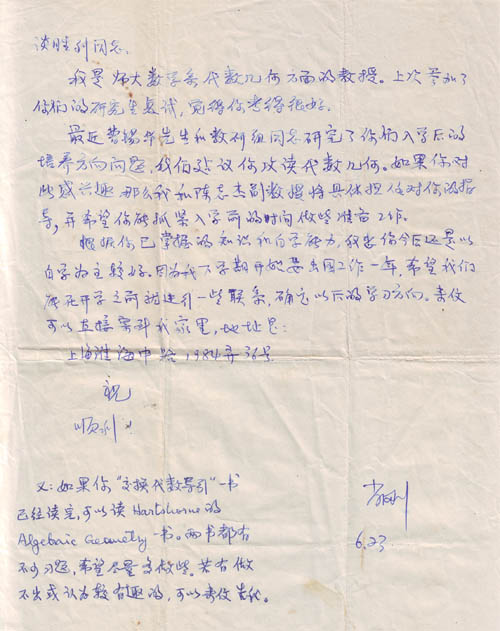 谈胜利同志:
我是师大数学系代数几何方面的教授。上次参加了
你们的研究生复试,觉得你考得很好。
最近曹锡华先生和教研组同志研究了你们入学后的
培养方向问题,我们建议你攻读代数几何。如果你对
此感兴趣 那么我和陈志杰副教授将具体担任对你的指
导,并希望你能抓紧入学前的时间做些准备工作。
根据你已掌握的知识和自学能力,我看你今后还是以
自学为主较好。因为我下学期开始要出国工作一年,希望我们
在开学之前就进行一些联系,确定以后的学习方向。来信
可以直接寄到我家里,地址是:
上海淮海中路1984弄36号
祝
顺利!
肖刚
6.23
又:如果你“交换代数导引”一书
已经读完,可以读Hartshorne的
Algebraic Geometry一书。两书都有
不少习题,希望尽量多做些。若有做
不出或认为较有趣的,可以来信告我。